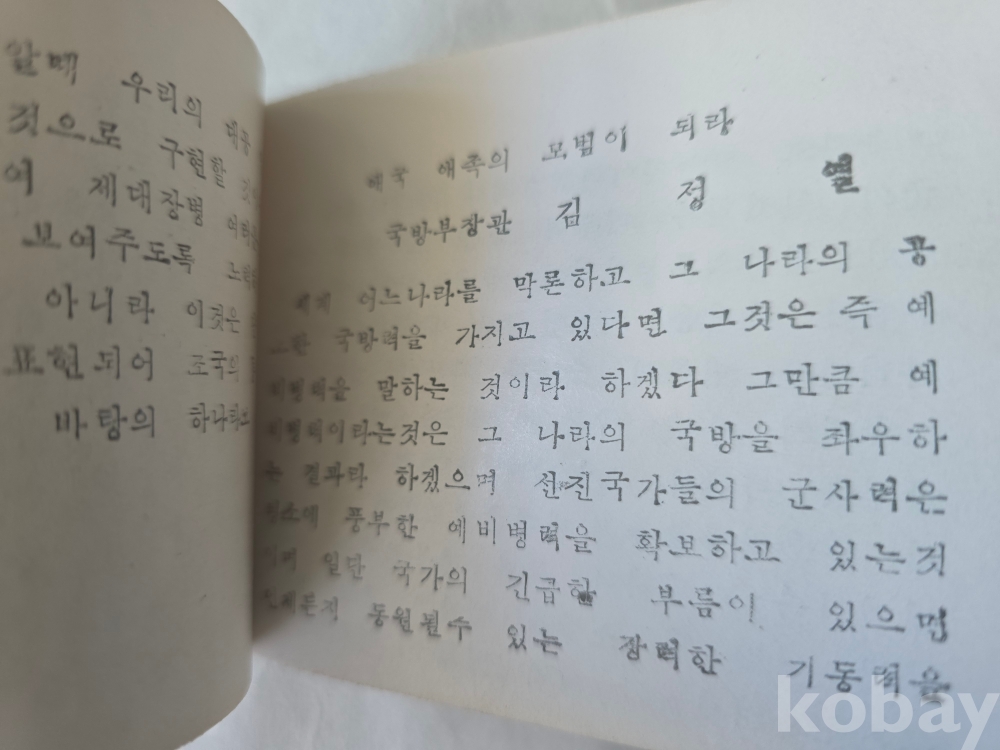 알때 우리의 대공
것으로 구현할
여 제대장병 여러분
보여주도록 노력
아니라 이것은
표현되어 조국의
바탕의 하나
애국 애족의 모범이 되라
국방부장관 김 정 열
세계 어느나라를 막론하고 그 나라의 공
고한 국방력을 가지고 있다면 그것은 즉 예
비병력을 말하는 것이라 하겠다 그만큼 예
비병력이라는것은 그 나라의 국방을 좌우하
는 결과라 하겠으며 선진국가들의 군사력은
평소에 풍부한 예비병력을 확보하고 있는것
이며 일단 국가의 긴급한 부름이 있으면
언제든지 동원될수 있는 강력한 기동력을
kobay